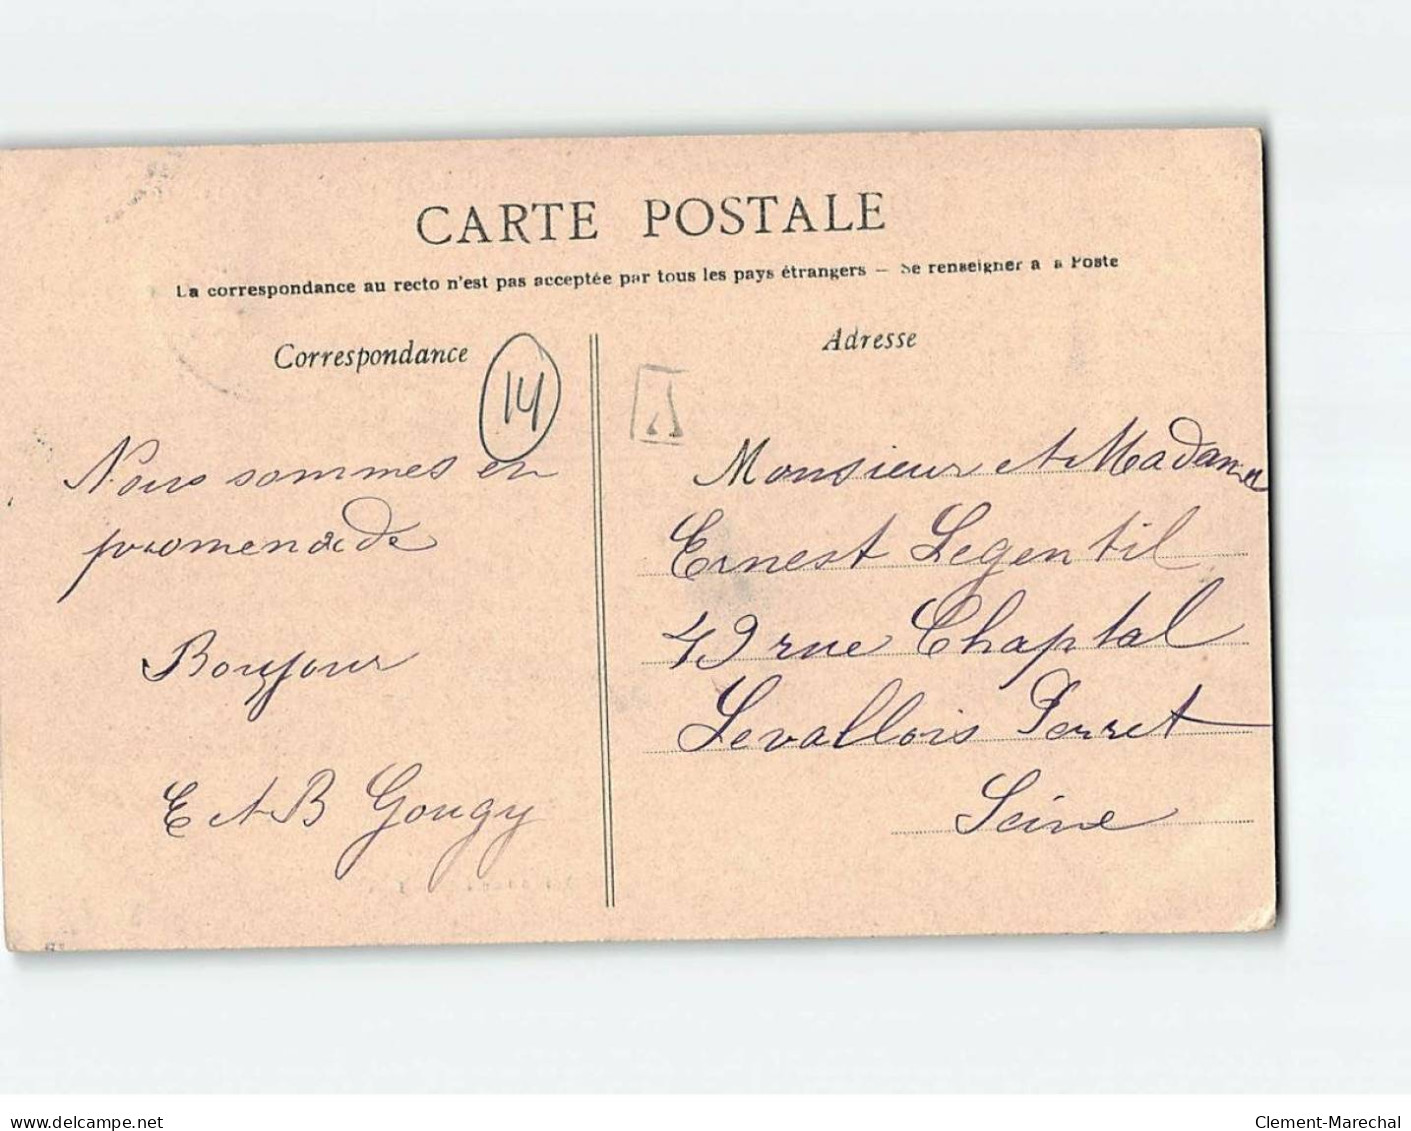 CARTE POSTALE
La correspondance au recto n'est pas acceptée par tous les pays étrangers — Se renseigner à la Poste
Correspondance
14
Nous sommes en
promenade
Bonjour
E et B Gougy
Adresse
Monsieur et Madame
Ernest Legentil
49 rue Chaptal
Levallois Perret
Seine
www.delcampe.net
Clement-Marechal